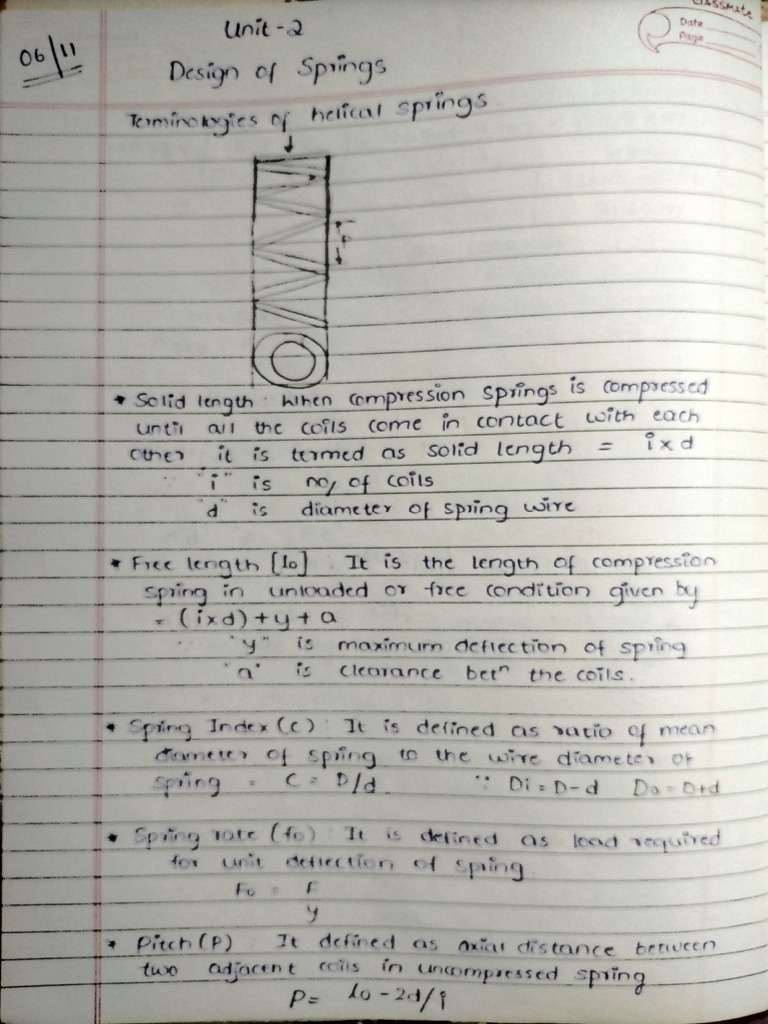 classmate
Date
Page
06/11
Unit-2
Design of Springs
Terminologies of helical springs
P
* Solid length: When compression springs is compressed
until all the coils come in contact with each
other it is termed as solid length = i×d
"i" is no/ of coils
"d" is diameter of spring wire
* Free length [lo]. It is the length of compression
spring in unloaded or free condition given by
= (i×d)+y+a
"y" is maximum deflection of spring
"a" is clearance betn the coils.
* Spring Index (C): It is defined as ratio of mean
diameter of spring to the wire diameter of
spring = C = D/d ∵ Di = D-d Do = D+d
* Spring rate (fo): It is defined as load required
for unit deflection of spring
Fo = F
y
* Pitch (P) It defined as axial distance between
two adjacent coils in uncompressed spring
P = lo - 2d/i